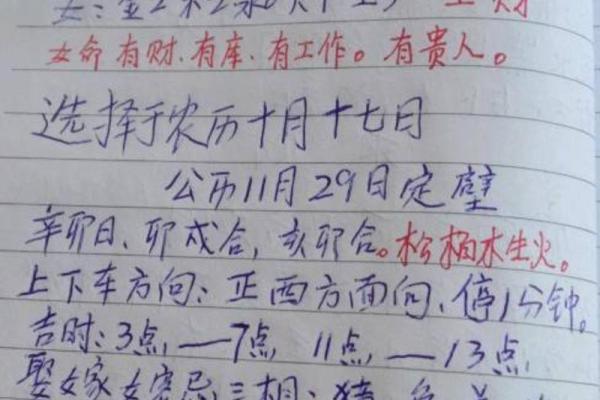 女命有财、有库、有工作。有贵人。
选择于农历十月十七日
公历11月29日定壁
辛卯日、卯戌合，亥卯合。松柏木生火。
上下车方向：正西方面向、停1分钟。
吉时：3点—7点 11点—13点
娶嫁女客忌三相：猪